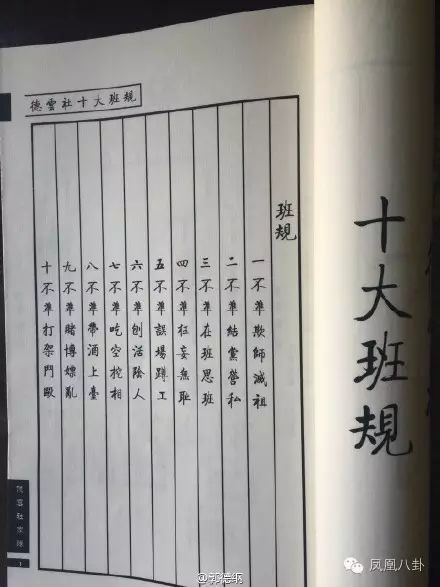 十大班規
德雲社十大班規
班規
一不準欺師滅祖
二不準結黨營私
三不準在班思班
四不準狂妄無恥
五不準誤場蹲工
六不準刨活陰人
七不準吃空挖相
八不準帶酒上臺
九不準賭博嫖亂
十不準打架鬥毆
德雲社家譜
@郭德纲
凤凰八卦